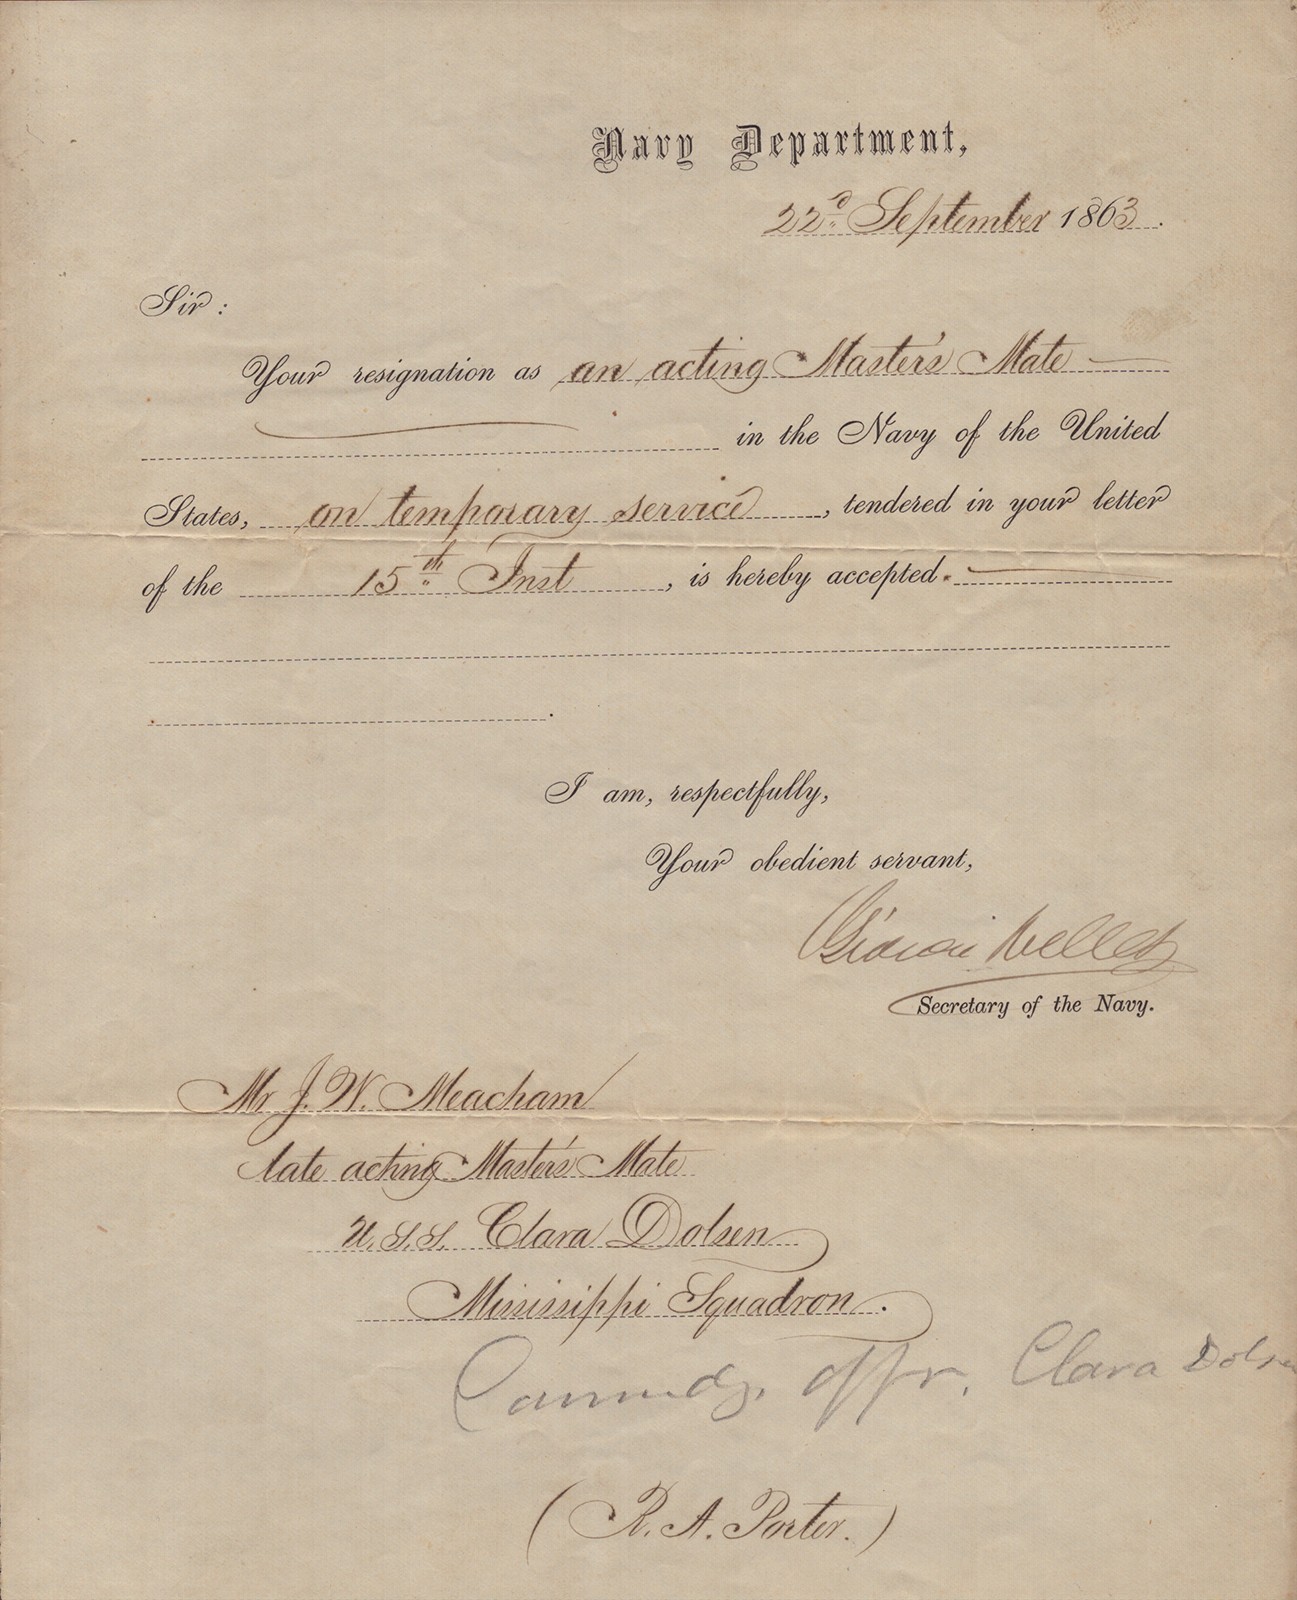 Navy Department,
22d September 1863.
Sir:
Your resignation as an acting Master's Mate
in the Navy of the United
States, on temporary service, tendered in your letter
of the 15th Inst, is hereby accepted.
I am, respectfully,
Your obedient servant,
Gideon Welles
Secretary of the Navy.
Mr J. W. Meacham
late acting Master's Mate
U.S.S. Clara Dolsen
Mississippi Squadron.
Commdg. Offr. Clara Dolsen
(R. A. Porter.)